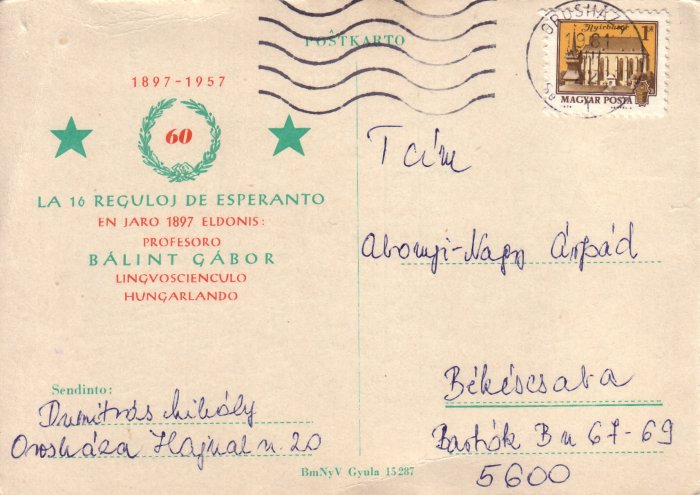 POŜTKARTO
OROSHÁZ
Nyírbátor
1Ft
MAGYAR POSTA
1897-1957
60
LA 16 REGULOJ DE ESPERANTO
EN JARO 1897 ELDONIS:
PROFESORO
BÁLINT GÁBOR
LINGVOSCIENCULO
HUNGARLANDO
Abonyi-Nagy Árpád
Békéscsaba
Bartók B u 67-69
5600
Sendinto:
Dumitrás Mihály
Orosháza Hajnal u. 20
BmNyV Gyula 15287